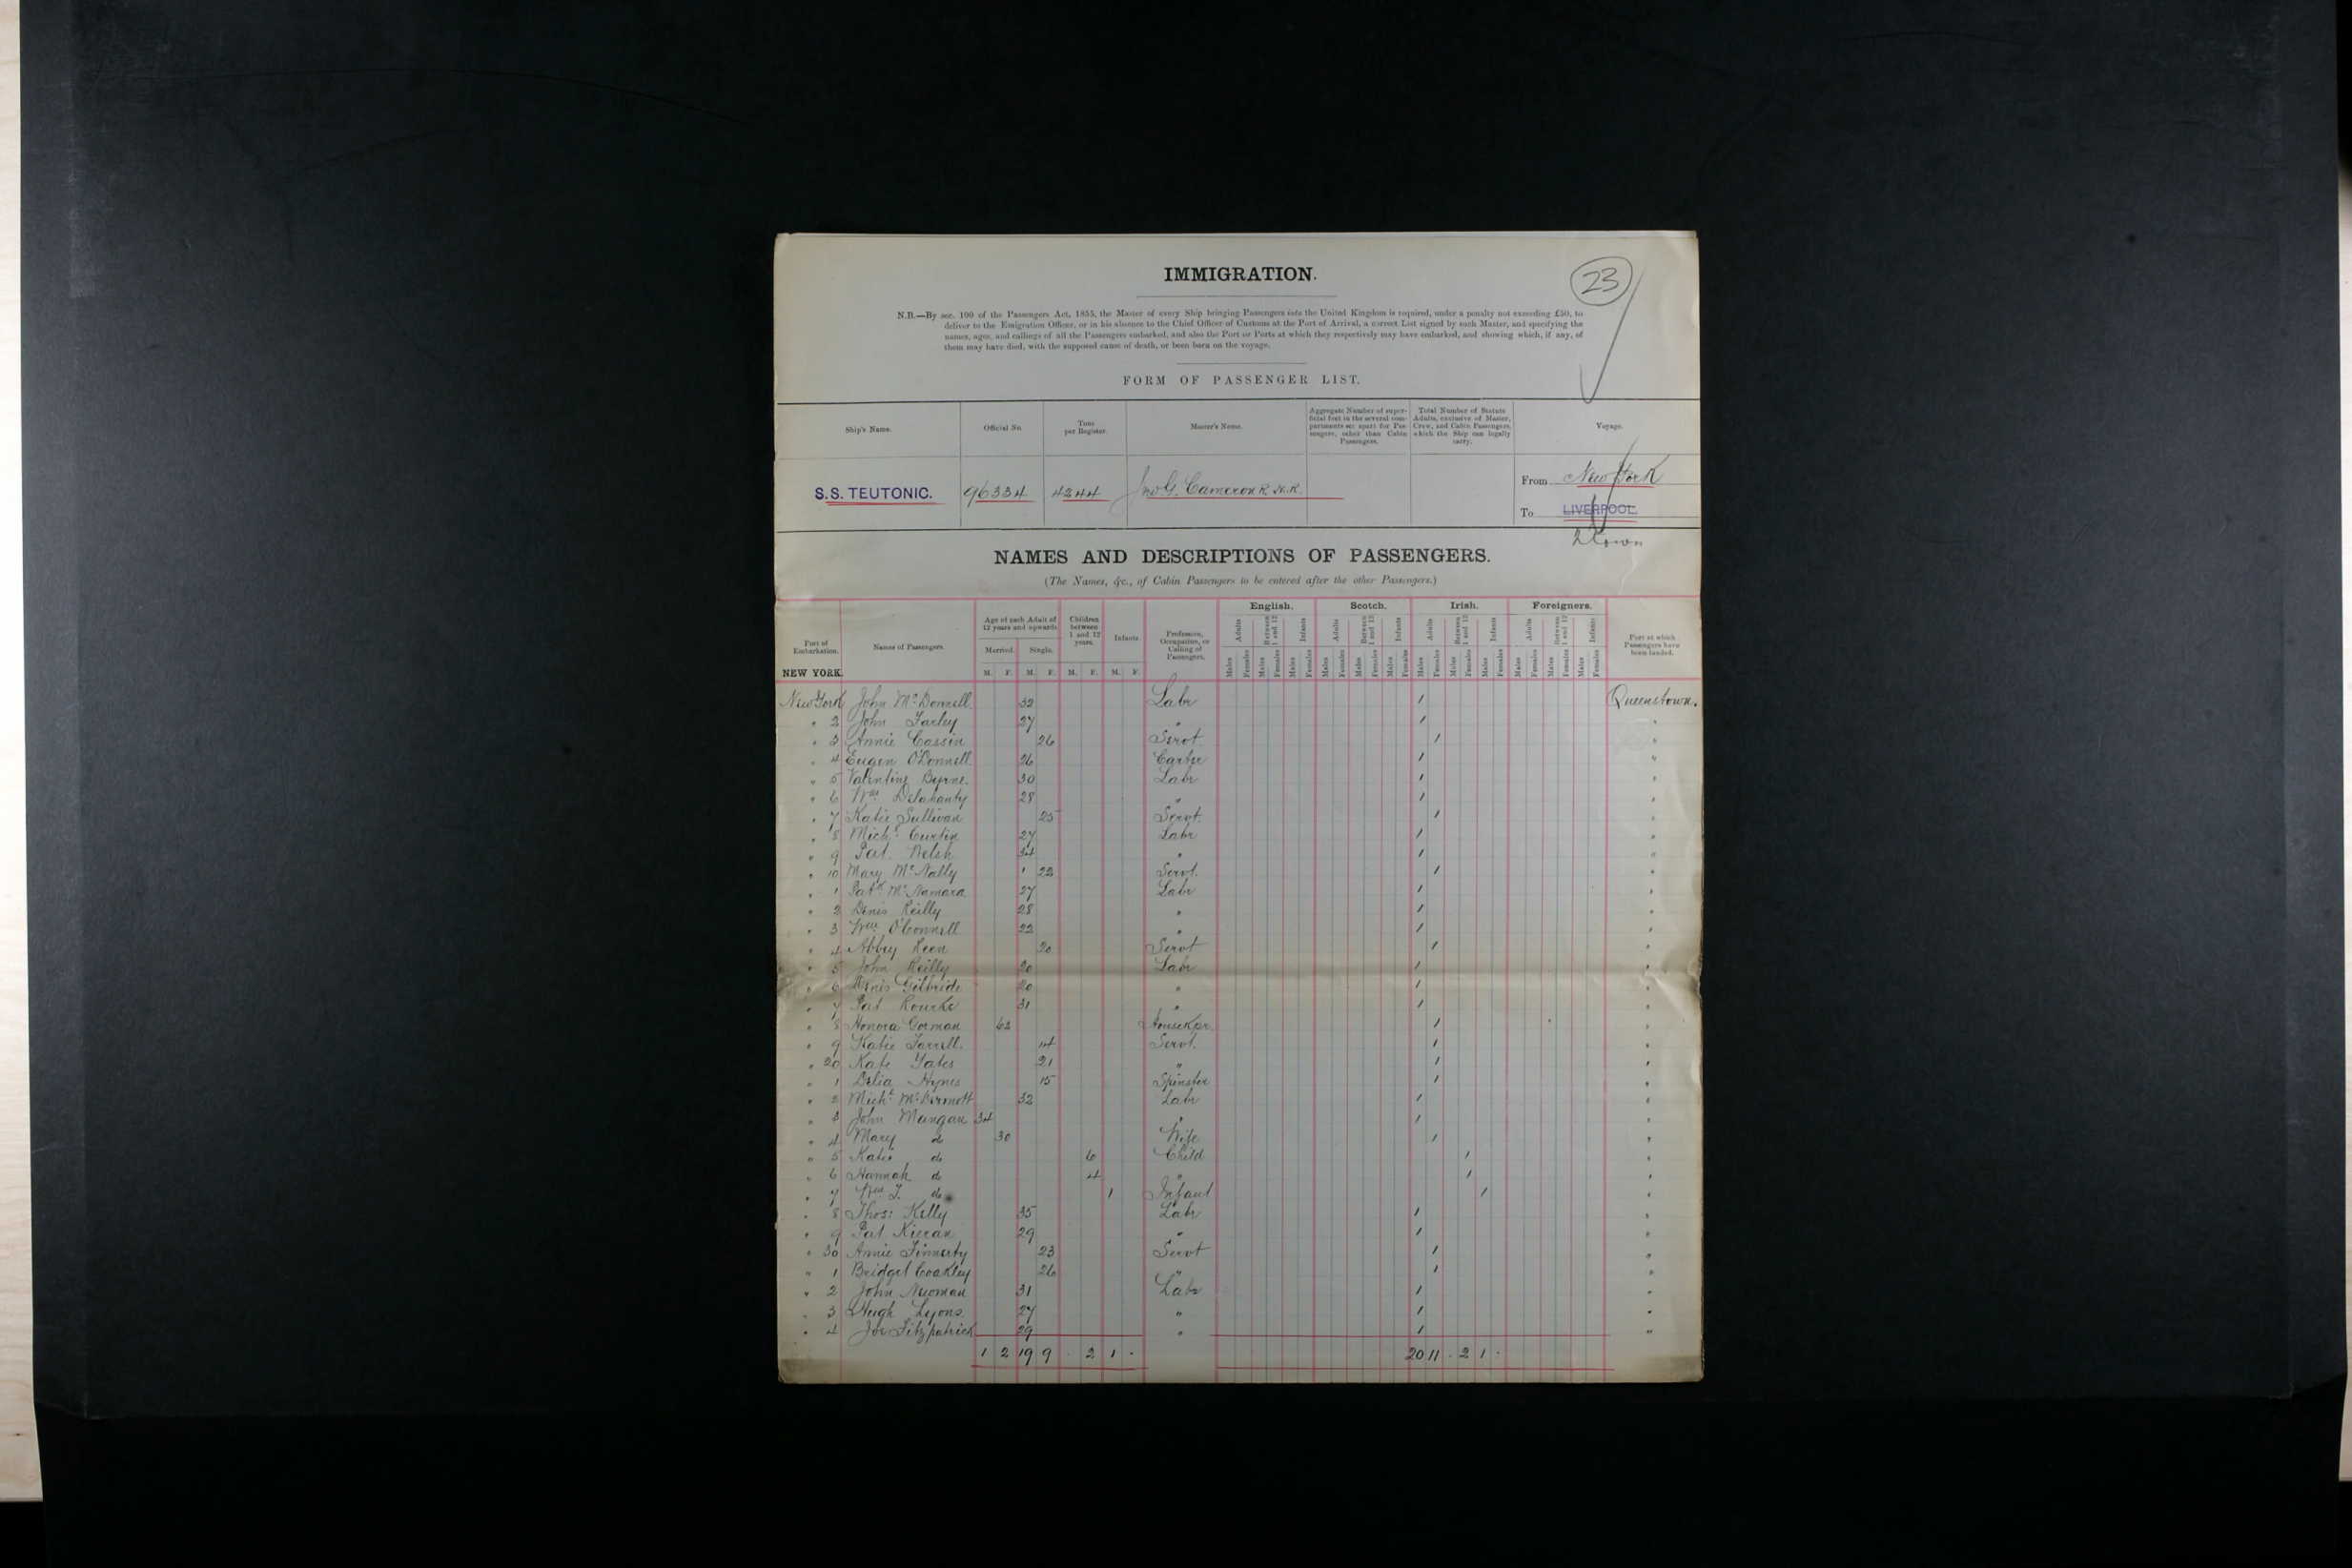 IMMIGRATION.
23
N.B.—By sec. 100 of the Passengers Act, 1855, the Master of every Ship bringing Passengers into the United Kingdom is required, under a penalty not exceeding £50, to
deliver to the Emigration Officer, or in his absence to the Chief Officer of Customs at the Port of Arrival, a correct List signed by such Master, and specifying the
names, ages, and callings of all the Passengers embarked, and also the Port or Ports at which they respectively may have embarked, and showing which, if any, of
them may have died, with the supposed cause of death, or been born on the voyage.
FORM OF PASSENGER LIST.
Ship's Name. Official No. Tons per Register. Master's Name. Aggregate Number of superficial feet in the several compartments set apart for Passengers, other than Cabin Passengers. Total Number of Statute Adults, exclusive of Master, Crew, and Cabin Passengers, which the Ship can legally carry. Voyage.
S.S. TEUTONIC. 96334 4244 Jno G. Cameron R.N.R. From New York
To LIVERPOOL
Qtown
NAMES AND DESCRIPTIONS OF PASSENGERS.
(The Names, &c., of Cabin Passengers to be entered after the other Passengers.)
Port of Embarkation. Names of Passengers. Age of each Adult of 12 years and upwards. Children between 1 and 12 years. Infants. Profession, Occupation, or Calling of Passengers. English. Scotch. Irish. Foreigners. Port at which Passengers have been landed.
Married. Single.
Adults Between 1 and 12 Infants Adults Between 1 and 12 Infants Adults Between 1 and 12 Infants Adults Between 1 and 12 Infants
NEW YORK. M. F. M. F. M. F. M. F. Males Females Males Females Males Females Males Females Males Females Males Females Males Females Males Females Males Females Males Females Males Females Males Females
New York John McDonnell 32 Labr 1 Queenstown.
" 2 John Farley 27 " 1 "
" 3 Annie Cassin 26 Servt 1 "
" 4 Eugen O'Donnell 26 Carter 1 "
" 5 Valentine Byrne. 30 Labr 1 "
" 6 Wm Delahanty 28 " 1 "
" 7 Katie Sullivan 25 Servt. 1 "
" 8 Michl Curtin 27 Labr 1 "
" 9 Pat. Welsh 34 " 1 "
" 10 Mary McNally 22 Servt. 1 "
" 1 Patk McNamara 27 Labr 1 "
" 2 Denis Reilly 28 " 1 "
" 3 Wm O'Connell 22 " 1 "
" 4 Abbey Keen 20 Servt 1 "
" 5 John Reilly 20 Labr 1 "
" 6 Denis Gilbride 20 " 1 "
" 7 Pat Rourke 31 " 1 "
" 8 Honora Gorman 62 Housekpr. 1 "
" 9 Katie Farrell. 14 Servt. 1 "
" 20 Kate Yates 21 " 1 "
" 1 Delia Hynes 15 Spinster 1 "
" 2 Michl McDermott 32 Labr 1 "
" 3 John Mangan 34 " 1 "
" 4 Mary do 30 Wife 1 "
" 5 Katie do 6 Child 1 "
" 6 Hannah do 4 " 1 "
" 7 Wm J. do 1 Infant 1 "
" 8 Thos: Kelly 35 Labr 1 "
" 9 Pat Kieran 29 " 1 "
" 30 Annie Finnerty 23 Servt 1 "
" 1 Bridget Coakley 26 " 1 "
" 2 John Newman 31 Labr 1 "
" 3 Hugh Lyons 27 " 1 "
" 4 Joe Fitzpatrick 29 " 1 "
1 2 19 9 . 2 1 . 20 11 . 2 1 .